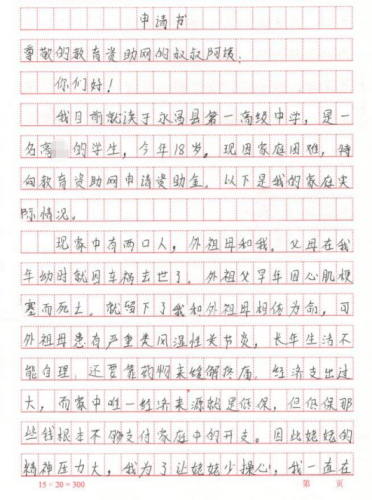 申请书
尊敬的教育资助网的叔叔阿姨：
你们好！
我目前就读于永昌县第一高级中学，是一
名高 的学生，今年18岁。现因家庭困难，特
向教育资助网申请资助金。以下是我的家庭实
际情况。
现家中有两口人，外祖母和我。父母在我
年幼时就因车祸去世了。外祖父早年因心肌梗
塞而死亡。就留下了我和外祖母相依为命，可
外祖母患有严重类风湿性关节炎，长年生活不
能自理，还要靠药物来缓解疼痛。经济支出过
大，而家中唯一经济来源就是低保，但低保那
些钱根本不够支付家庭中的开支。因此姥姥的
精神压力大，我为了让姥姥少操心，我一直在
15×20=300 第 页